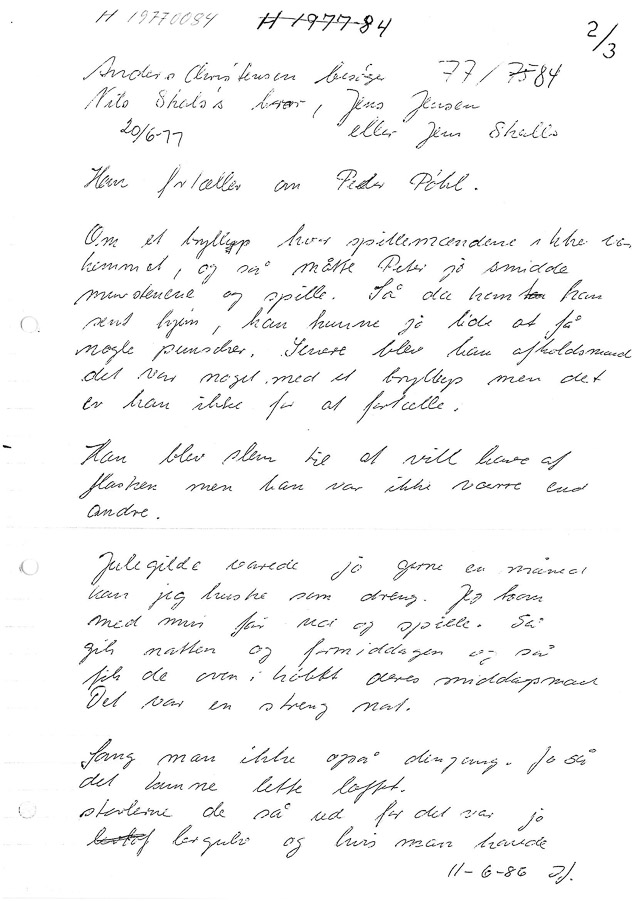 H 19770084 H 1977-84 2/3
Anders Christensen besøger 77/7584
Nito Skalø's bror, Jens Jensen
20/6-77 eller Jens Skallo
Han fortæller om Peder Pöhl.
Om et bryllup hvor spillemændene ikke var
kommet, og så måtte Peter jo smidde
murstenene og spille. Så da kom han
sent hjem, han kunne jo lide at få
nogle punscher. Senere blev han afholdsmand
det var noget med et bryllup men det
er han ikke for at fortælle.
Han blev slem til at vill have af
flasken men han var ikke værre end
andre.
Julegilde varede jo gerne en måned
kan jeg huske som dreng. Jeg kom
med min far ud og spille. Så
gik natten og formiddagen og så
fik de oven i købet deres middagsmad
Det var en streng nat.
Sang man ikke også dengang. Jo så
det kunne lette loftet.
støvlerne de så ud for det var jo
lergulv og hvis man havde
11-6-86